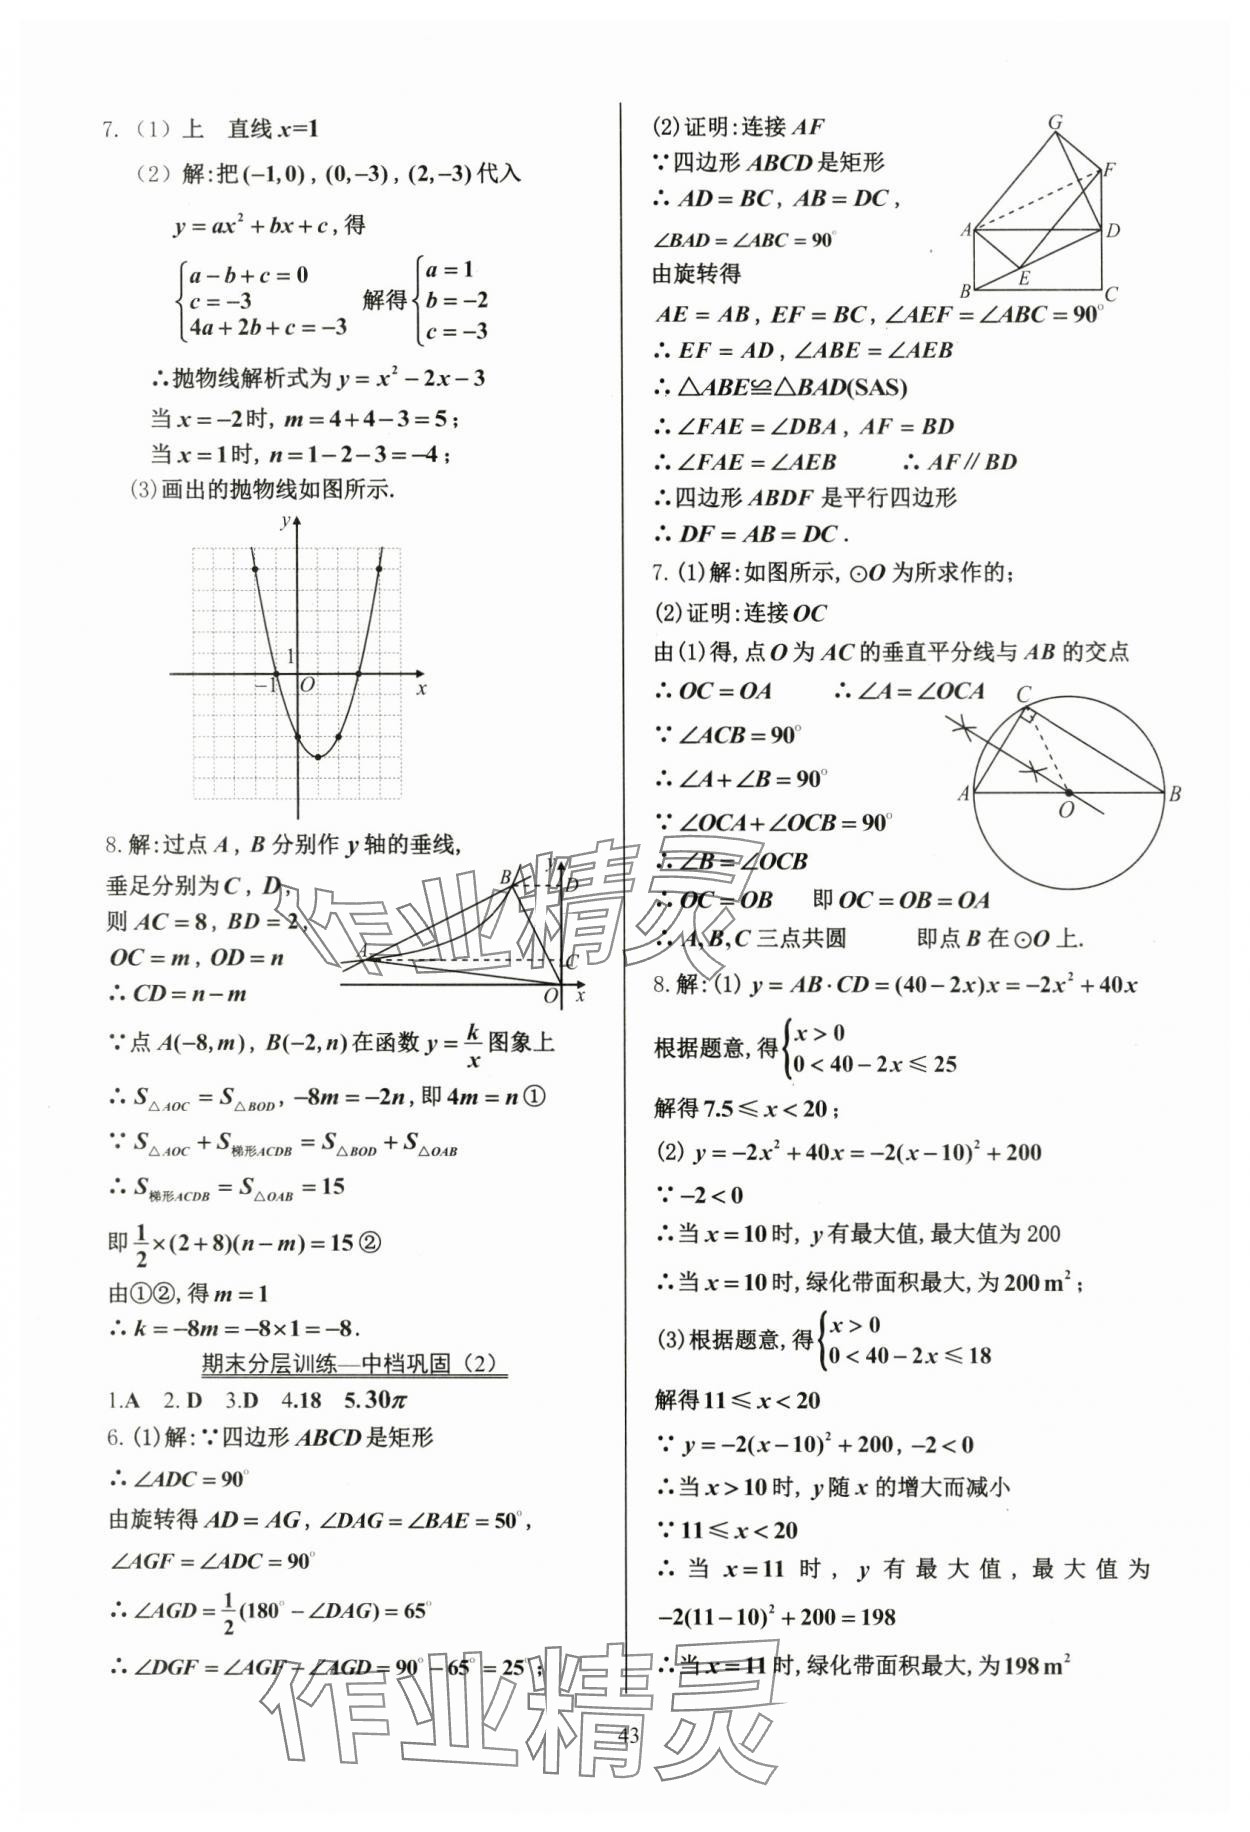 7.（1）上　直线 x=1
（2）解:把(−1,0), (0,−3), (2,−3)代入
y = ax² + bx + c, 得
{a − b + c = 0
c = −3
4a + 2b + c = −3
解得{a = 1
b = −2
c = −3
∴抛物线解析式为 y = x² − 2x − 3
当 x = −2时, m = 4 + 4 − 3 = 5;
当 x = 1时, n = 1 − 2 − 3 = −4;
(3)画出的抛物线如图所示.
y
1
−1 O x
8.解:过点 A, B 分别作 y 轴的垂线,
垂足分别为 C, D,
则 AC = 8, BD = 2,
OC = m, OD = n
∴ CD = n − m
y
B D
A C
O x
∵点 A(−8,m), B(−2,n)在函数 y = k/x 图象上
∴ S△AOC = S△BOD, −8m = −2n, 即 4m = n ①
∵ S△AOC + S梯形ACDB = S△BOD + S△OAB
∴ S梯形ACDB = S△OAB = 15
即 1/2 ×(2+8)(n − m) = 15 ②
由①②, 得 m = 1
∴ k = −8m = −8×1 = −8.
期末分层训练—中档巩固（2）
1.A 2.D 3.D 4.18 5.30π
6.(1)解:∵四边形 ABCD 是矩形
∴ ∠ADC = 90°
由旋转得 AD = AG, ∠DAG = ∠BAE = 50°,
∠AGF = ∠ADC = 90°
∴ ∠AGD = 1/2 (180° − ∠DAG) = 65°
∴ ∠DGF = ∠AGF − ∠AGD = 90° − 65° = 25°;
(2)证明:连接 AF
∵四边形 ABCD 是矩形
∴ AD = BC, AB = DC,
∠BAD = ∠ABC = 90°
由旋转得
G
F
A D
E
B C
AE = AB, EF = BC, ∠AEF = ∠ABC = 90°
∴ EF = AD, ∠ABE = ∠AEB
∴ △ABE≌△BAD(SAS)
∴ ∠FAE = ∠DBA, AF = BD
∴ ∠FAE = ∠AEB　∴ AF∥BD
∴四边形 ABDF 是平行四边形
∴ DF = AB = DC.
7.(1)解:如图所示, ⊙O 为所求作的;
(2)证明:连接 OC
由(1)得, 点 O 为 AC 的垂直平分线与 AB 的交点
∴ OC = OA　∴ ∠A = ∠OCA
∵ ∠ACB = 90°
∴ ∠A + ∠B = 90°
∵ ∠OCA + ∠OCB = 90°
∴ ∠B = ∠OCB
∴ OC = OB　即 OC = OB = OA
∴ A,B,C 三点共圆　即点 B 在 ⊙O 上.
C
A O B
8.解:(1) y = AB·CD = (40 − 2x)x = −2x² + 40x
根据题意, 得{x > 0
0 < 40 − 2x ≤ 25
解得 7.5 ≤ x < 20;
(2) y = −2x² + 40x = −2(x − 10)² + 200
∵ −2 < 0
∴当 x = 10 时, y 有最大值, 最大值为 200
∴当 x = 10 时, 绿化带面积最大, 为 200 m²;
(3)根据题意, 得{x > 0
0 < 40 − 2x ≤ 18
解得 11 ≤ x < 20
∵ y = −2(x − 10)² + 200, −2 < 0
∴当 x > 10 时, y 随 x 的增大而减小
∵ 11 ≤ x < 20
∴ 当 x = 11 时, y 有最大值, 最大值为
−2(11 − 10)² + 200 = 198
∴当 x = 11 时, 绿化带面积最大, 为 198 m²
43
作业精灵
作业精灵